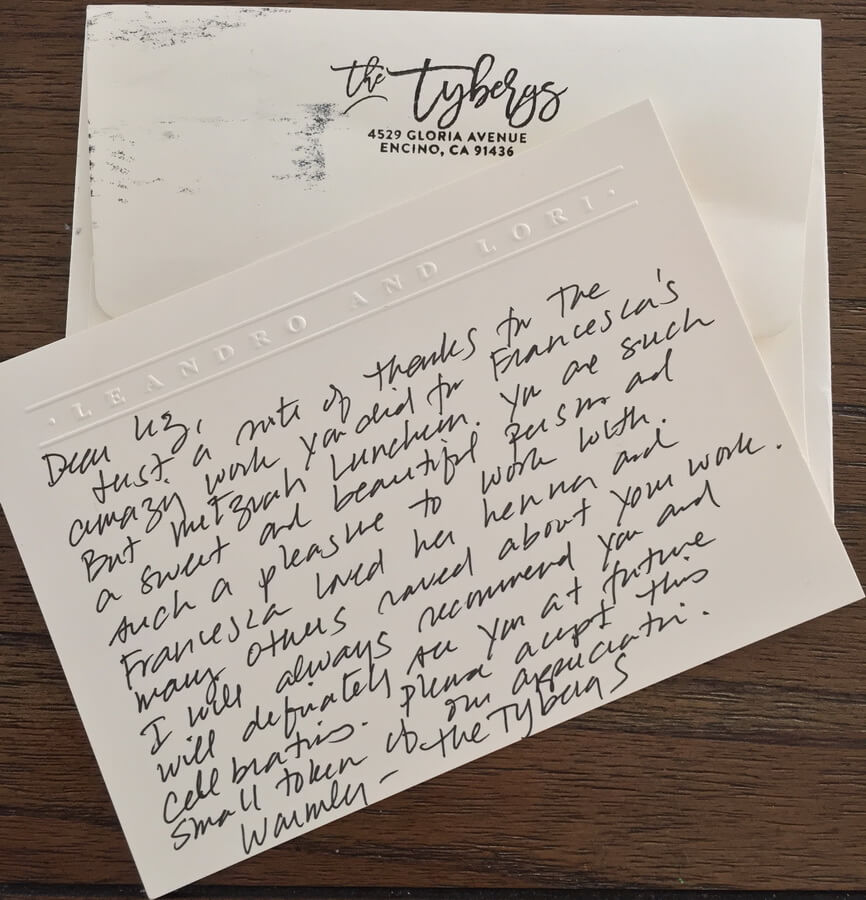 the Tybergs
4529 GLORIA AVENUE
ENCINO, CA 91436
· LEANDRO AND LORI ·
Dear Liz,
Just a note of thanks for the
amazing work you did for Francesca's
Bat Mitzvah Luncheon. You are such
a sweet and beautiful person and
such a pleasure to work with.
Francesca loved her henna and
many others raved about your work.
I will always recommend you and
will definately see you at future
celebrations. Please accept this
small token of our appreciation.
Warmly – the Tybergs